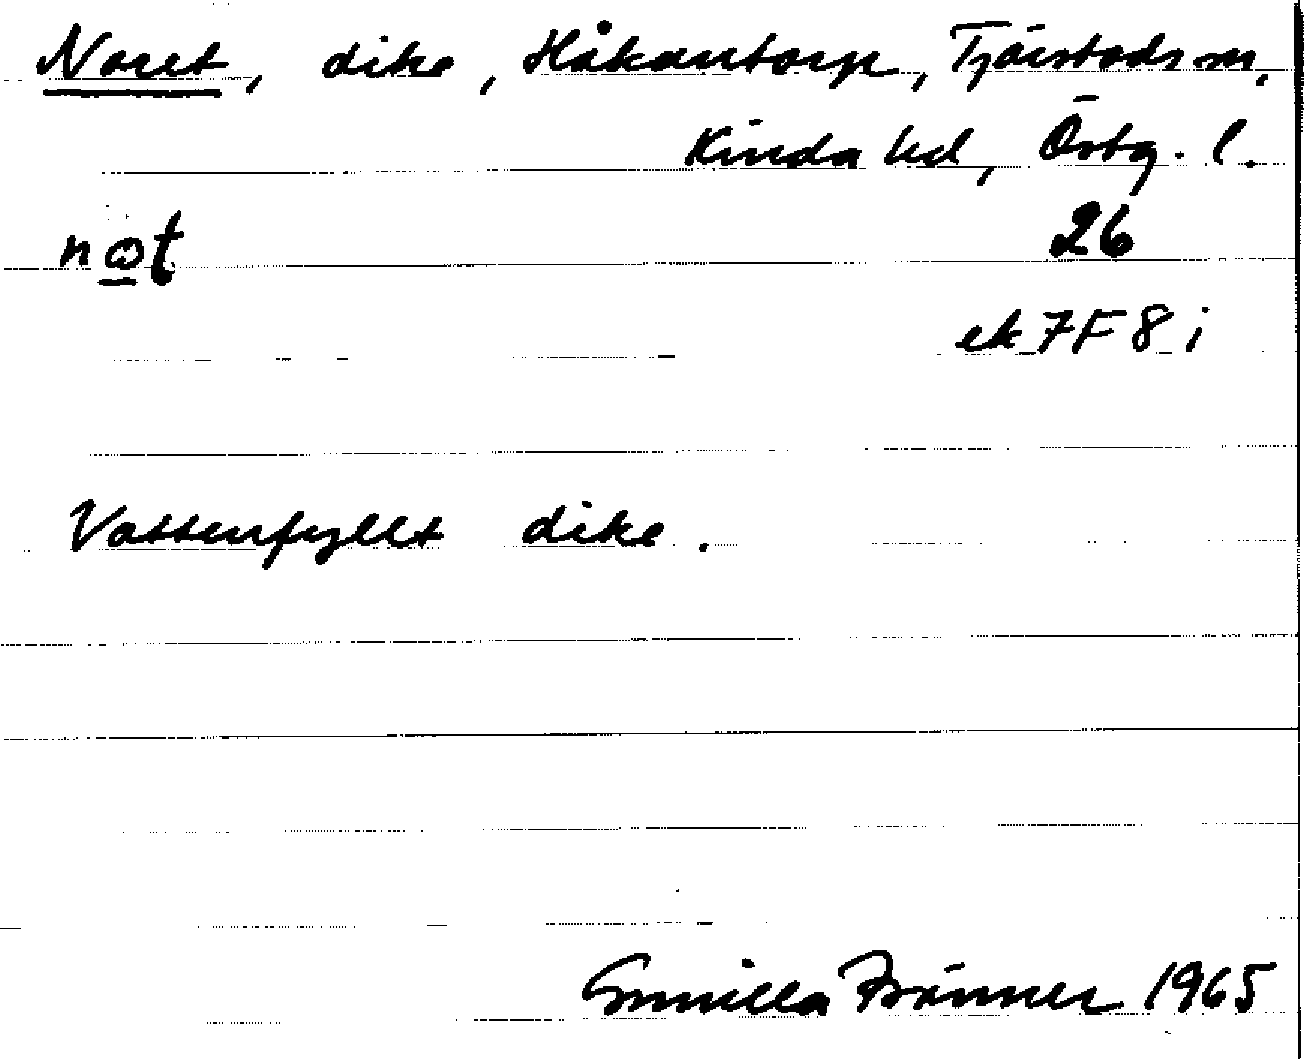 Noret, dike, Håkantorp, Tjärstads sn,
Kinda hd, Östg. l.
26
ek 7F8i
Vattenfyllt dike.
Gunilla 1965